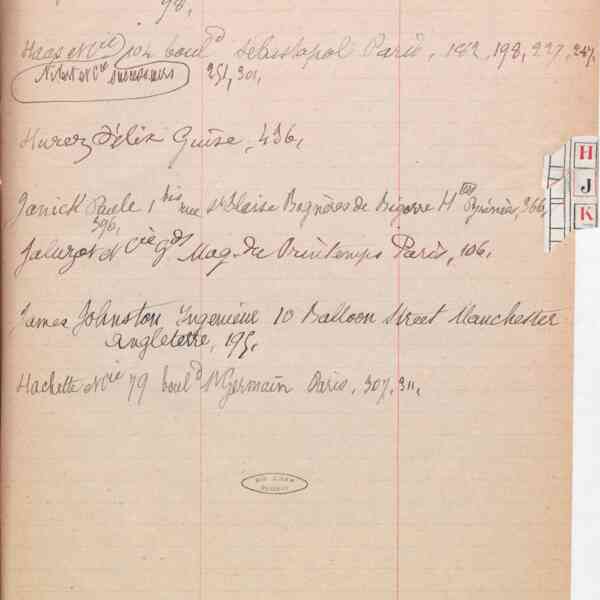 98,
Haas et Cie 104 boul.d Sébastopol Paris, 182, 198, 227, 247,
et Cie successeurs 251, 301,
Hurez Félix Guise, 436,
H
J
K
Janick Paule 1 bis rue St Blaise Bagnères de Bigorre Htes Pyrénées, 366,
396,
Jaluzot et Cie Gds Mag. du Printemps Paris, 106,
James Johnston Ingénieur 10 Balloon Street Manchester
Angleterre, 195,
Hachette et Cie 79 boul.d St Germain Paris, 307, 311,